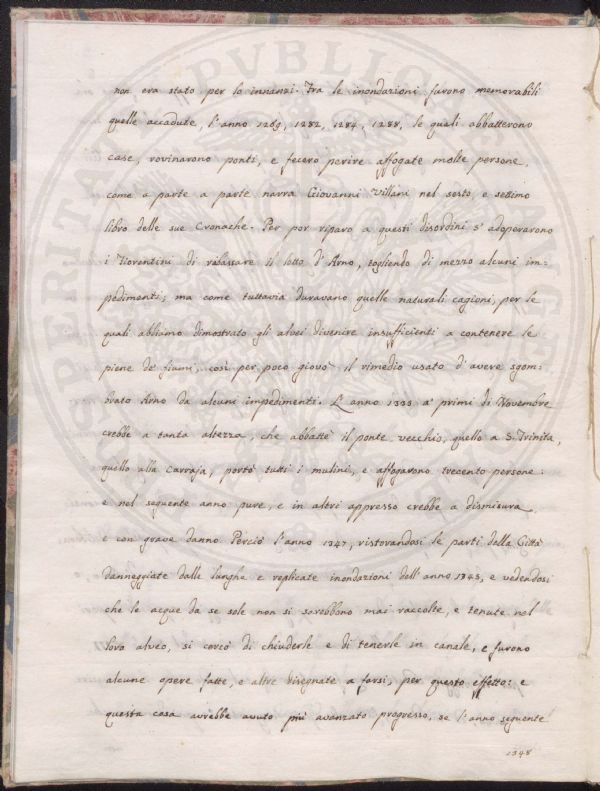 non era stato per lo innanzi. Fra le inondazioni furono memorabili
quelle accadute, l'anno 1269, 1282, 1284, 1288, le quali abbatterono
case, rovinarono ponti, e fecero perire affogate molte persone,
come a parte a parte narra Giovanni Villani nel sesto, e settimo
libro delle sue Cronache. Per por riparo a questi disordini s'adoperarono
i Fiorentini di ribassare il letto d'Arno, togliendo di mezzo alcuni im=
pedimenti; ma come tuttavia duravano quelle naturali cagioni, per le
quali abbiamo dimostrato gli alvei divenire insufficienti a contenere le
piene de' fiumi, così per poco giovò il rimedio usato d'avere sgom=
brato Arno da alcuni impedimenti. L'anno 1333 a' primi di Novembre
crebbe a tanta altezza, che abbattè il ponte vecchio, quello a S. Trinita,
quello alla Carraja, portò tutti i mulini, e affogarono trecento persone:
e nel seguente anno pure, e in altri appresso crebbe a dismisura,
e con grave danno Perciò l'anno 1347, ristorandosi le parti della Città
danneggiate dalle lunghe e replicate inondazioni dell'anno 1345, e vedendosi
che le acque da se sole non si sarebbono mai raccolte, e tenute nel
loro alveo, si cercò di chiuderle e di tenerle in canale, e furono
alcune opere fatte, e altre disegnate a farsi, per questo effetto: e
questa cosa avrebbe avuto più avanzato progresso, se l'anno seguente
1348
PVBLICA